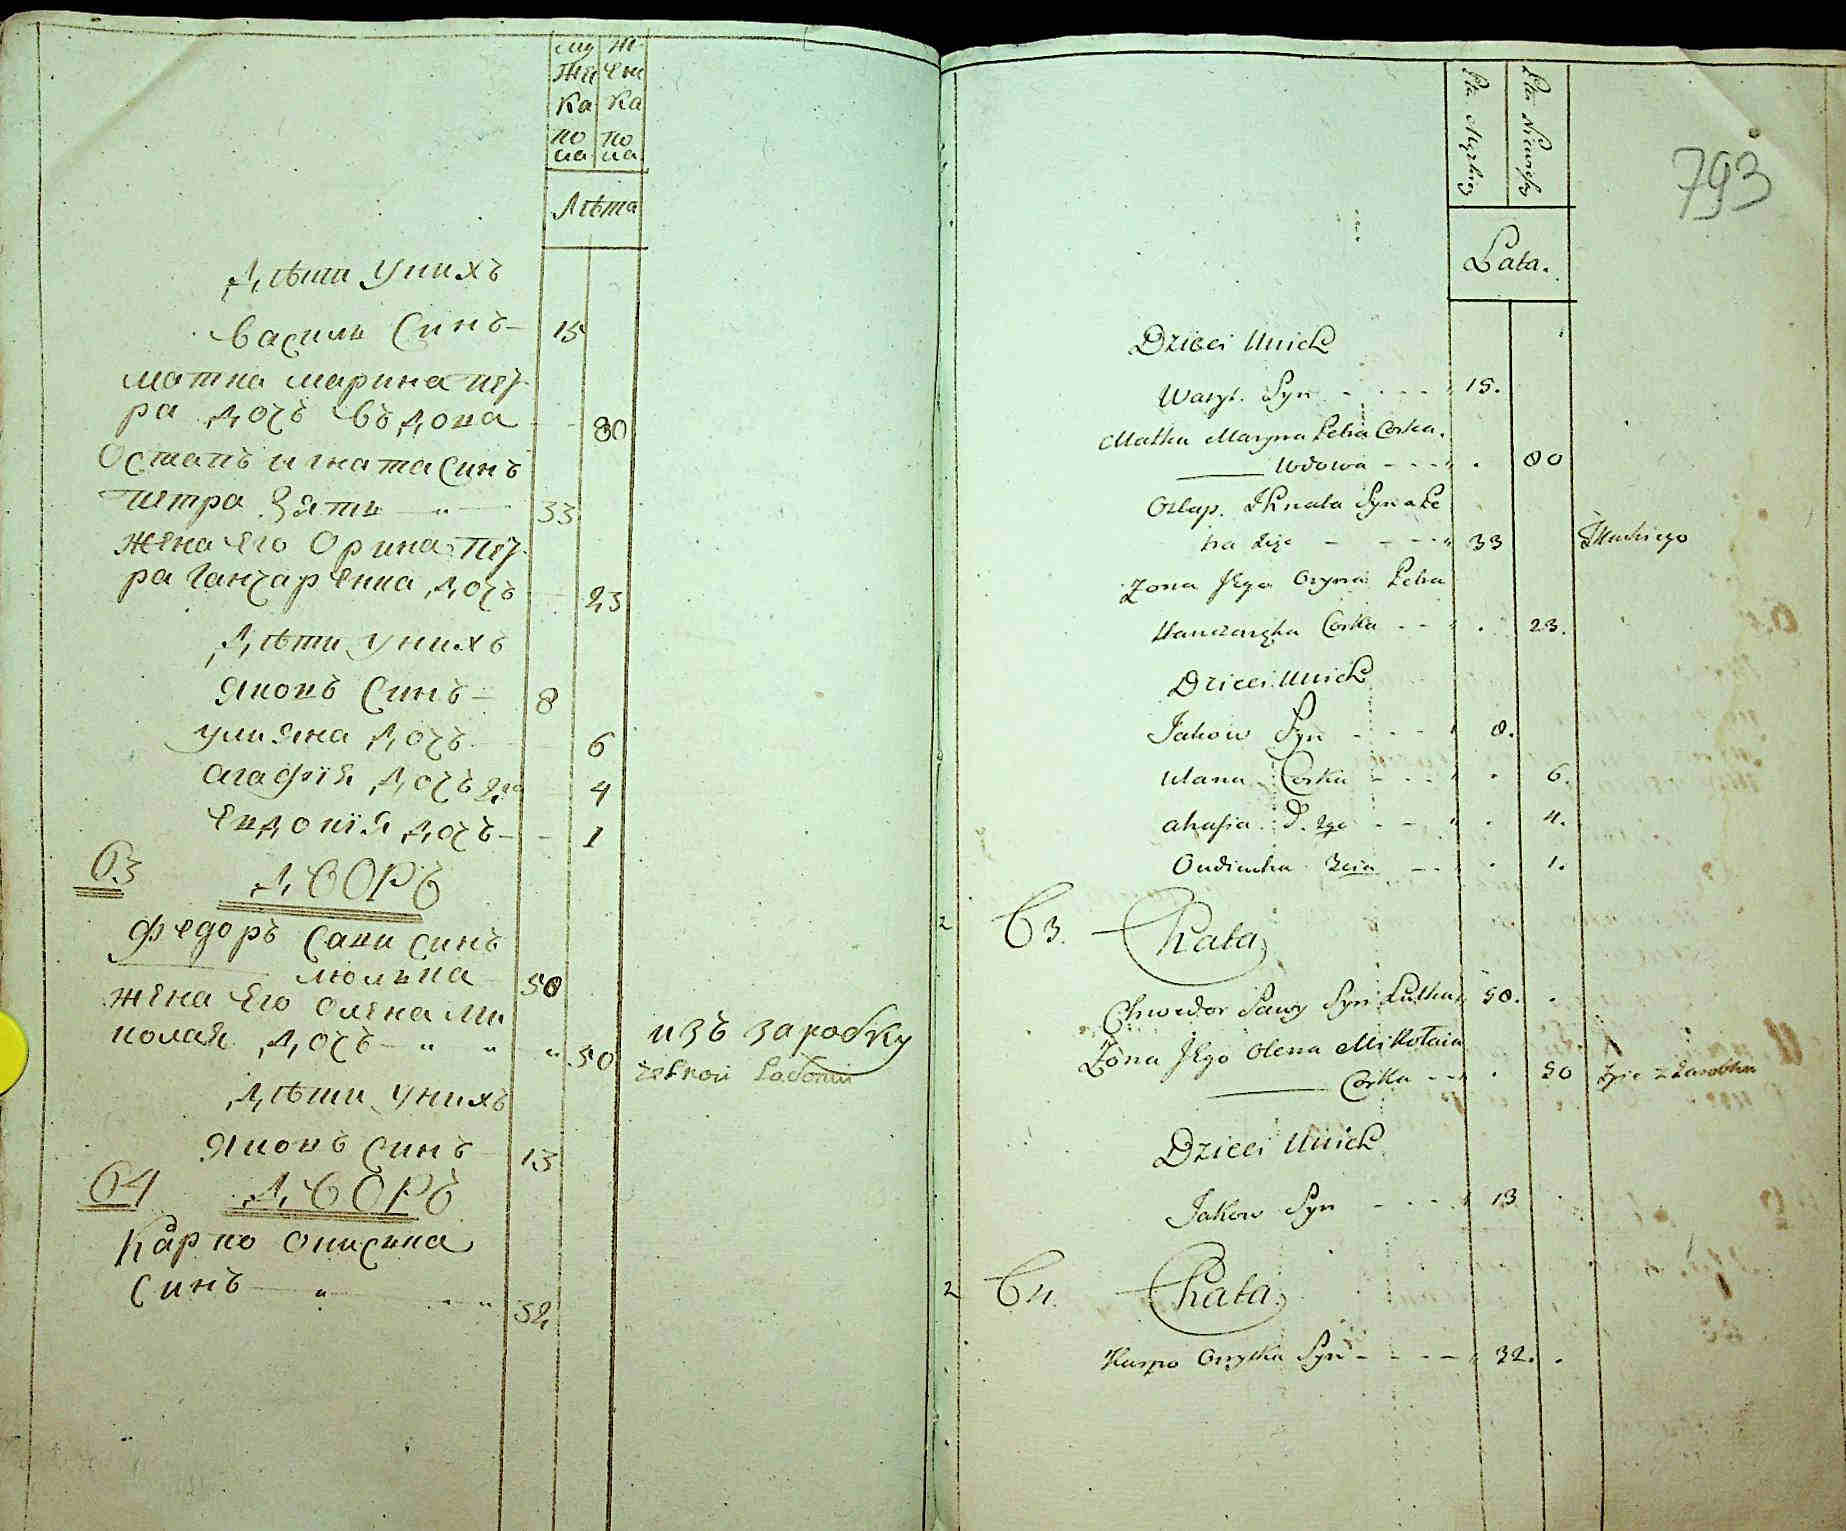 му же
жеи ен
ка ка
по по
ла ла
Лѣта
Дѣти У нихъ
Василь Синъ 15
Матка Марина Пет
ра дочъ Вдова 80
Остапъ Игната Синъ
Петра Зять 33
Жена Его Орина Пет
ра Ганчаренка дочъ 23
Дѣти У нихъ
Яковъ Синъ 8
Улияна дочъ 6
Агафія дочъ 2га 4
Евдокія дочъ 1
63 ДВОРЪ
Федоръ Сави Синъ
Люлька 50
Жена Его Олена Ми
колая дочъ 50 изъ заробку
Дѣти У нихъ
Яковъ Синъ 13
64 ДВОРЪ
Карпо Описька
Синъ 52
793
Płci Męzkiej
Płci
Lata.
Dzieci Unich
Wasyl. Syn 15.
Matka Maryna Petra Corka.
Wdowa 80
Ostap. Ihnata Syn a Pe
tra Zięć 33
Zona Jego Oryna Petra
Hanczarzka Corka 23.
Dzieci Unich
Jakow Syn 8.
Ulana Corka 6.
Ahafia D. 2ga 4.
Oudiucha 3cia 1.
63. Chata
Chwedor Sawy Syn Lulka 50.
Zona Jego Olena Mikołaia
Corka 50 żyie z Zarobku
Dzieci Unich
Jakow Syn 13
64. Chata.
Karpo Onyska Syn 32.